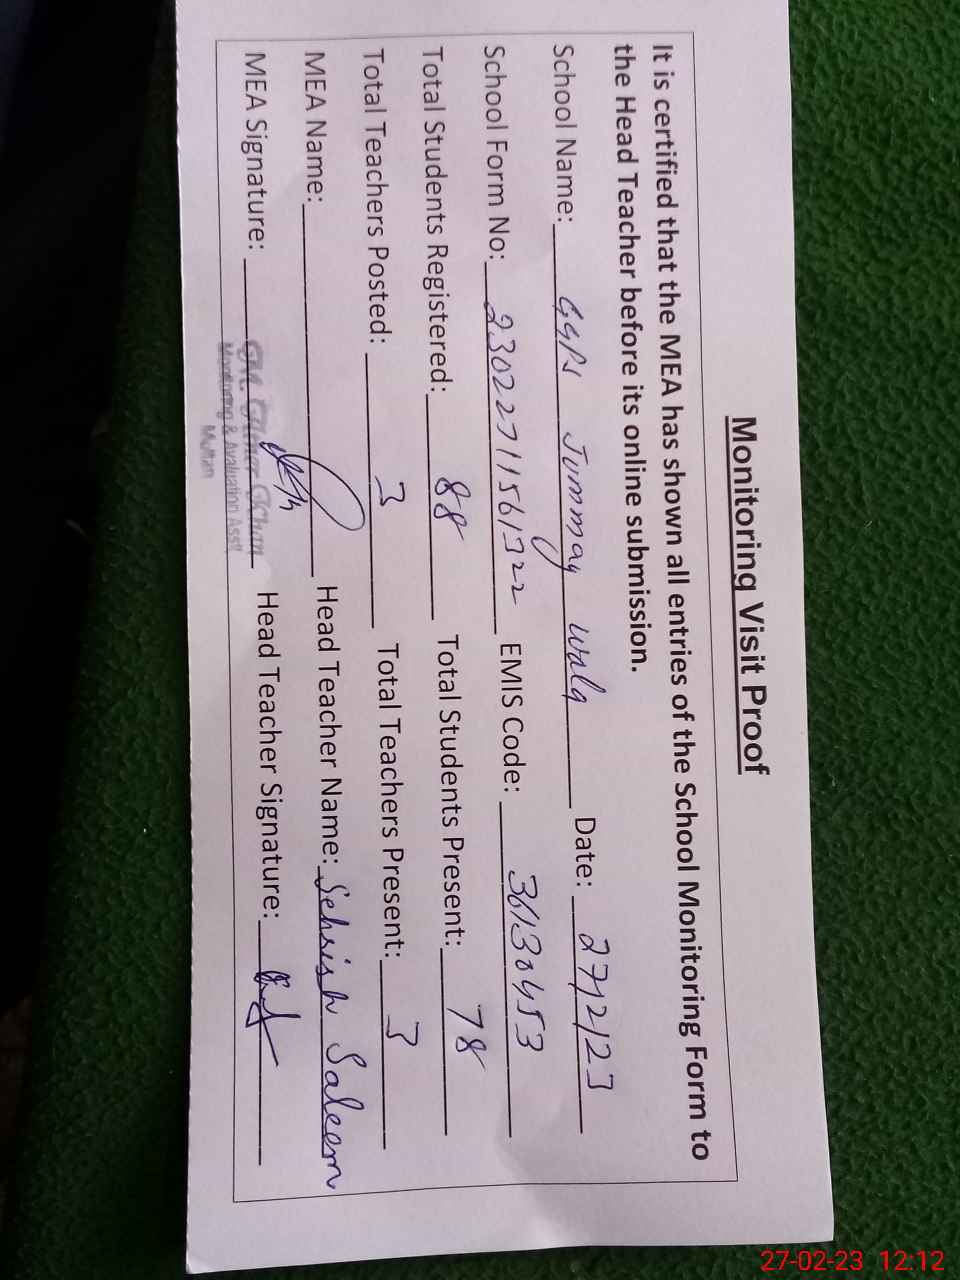 Monitoring Visit Proof
It is certified that the MEA has shown all entries of the School Monitoring Form to
the Head Teacher before its online submission.
School Name: GGPS Jummay wala Date: 27/2/23
School Form No: 23022711561322 EMIS Code: 36130453
Total Students Registered: 88 Total Students Present: 78
Total Teachers Posted: 3 Total Teachers Present: 3
MEA Name: Head Teacher Name: Sehrish Saleem
MEA Signature: Head Teacher Signature:
Khan
Monitoring & Avaluation Asstt
Multan
27-02-23 12:12